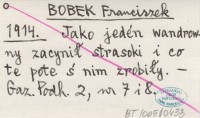 BOBEK Franciszek
1914. – Jako jedén wandrow-
ny zacynił strasoki i co
te potę ś nim zrobiły. –
Gaz. Podh. 2, nr 7 i 8.